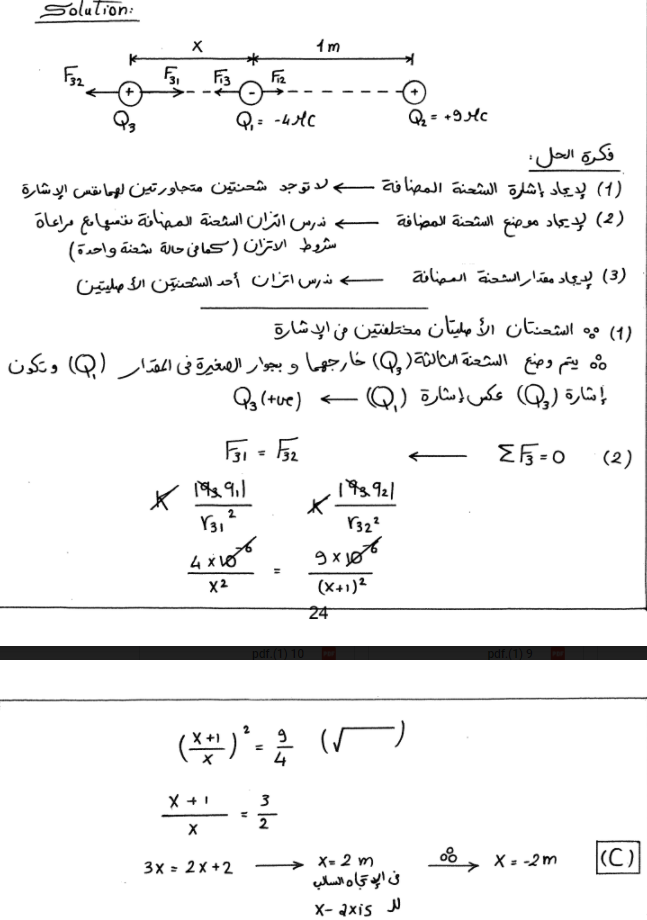 Solution:
x 1m
F32 F31 F13 F12
+ - +
Q3 Q1 = -4μC Q2 = +9μC
فكرة الحل:
(1) لإيجاد إشارة الشحنة المضافة ← لا توجد شحنتين متجاورتين لهما نفس الإشارة
(2) لإيجاد موضع الشحنة المضافة ← ندرس اتزان الشحنة المضافة نفسها مع مراعاة
شروط الاتزان (كما في حالة شحنة واحدة)
(3) لإيجاد مقدار الشحنة المضافة ← ندرس اتزان أحد الشحنتين الأصليتين
(1) ∵ الشحنتان الأصليتان مختلفتين في الإشارة
∴ يتم وضع الشحنة الثالثة (Q3) خارجهما و بجوار الصغيرة في المقدار (Q1) وتكون
إشارة (Q3) عكس إشارة (Q1) ← Q3 (+ve)
(2) ΣF3 = 0 ← F31 = F32
K |q3 q1| / r31² K |q3 q2| / r32²
4 × 10⁻⁶ / x² = 9 × 10⁻⁶ / (x+1)²
24
pdf.(1) 10 pdf.(1) 9
((x+1)/x)² = 9/4 (√ )
(x+1)/x = 3/2
3x = 2x+2 → x = 2 m ∴→ x = -2m (C)
في الإتجاه السالب
لـ
x- axis